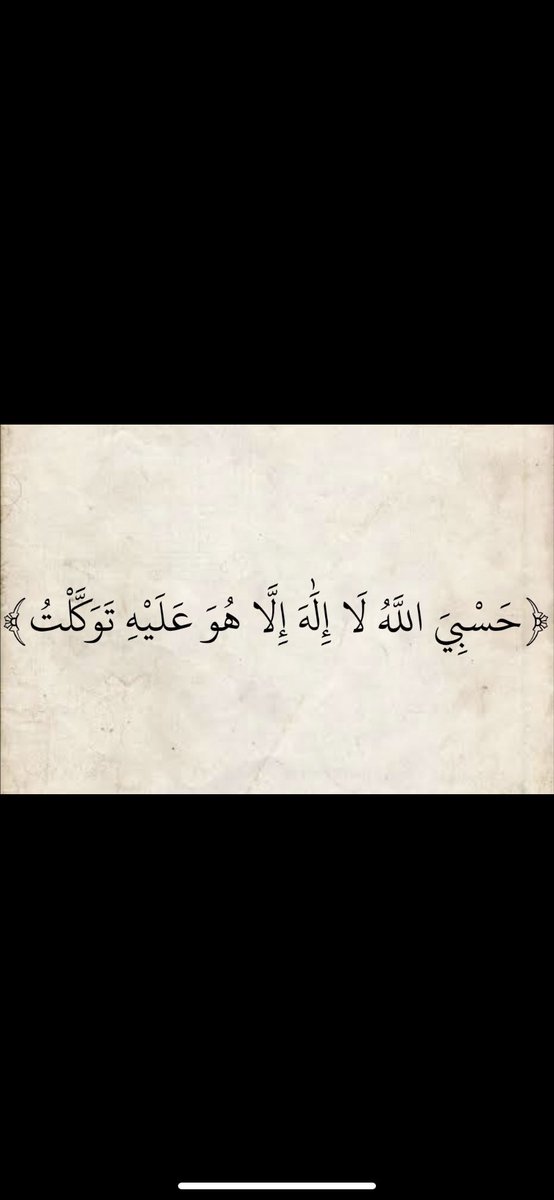 ﴿حَسْبِيَ اللَّهُ لَا إِلَٰهَ إِلَّا هُوَ عَلَيْهِ تَوَكَّلْتُ﴾